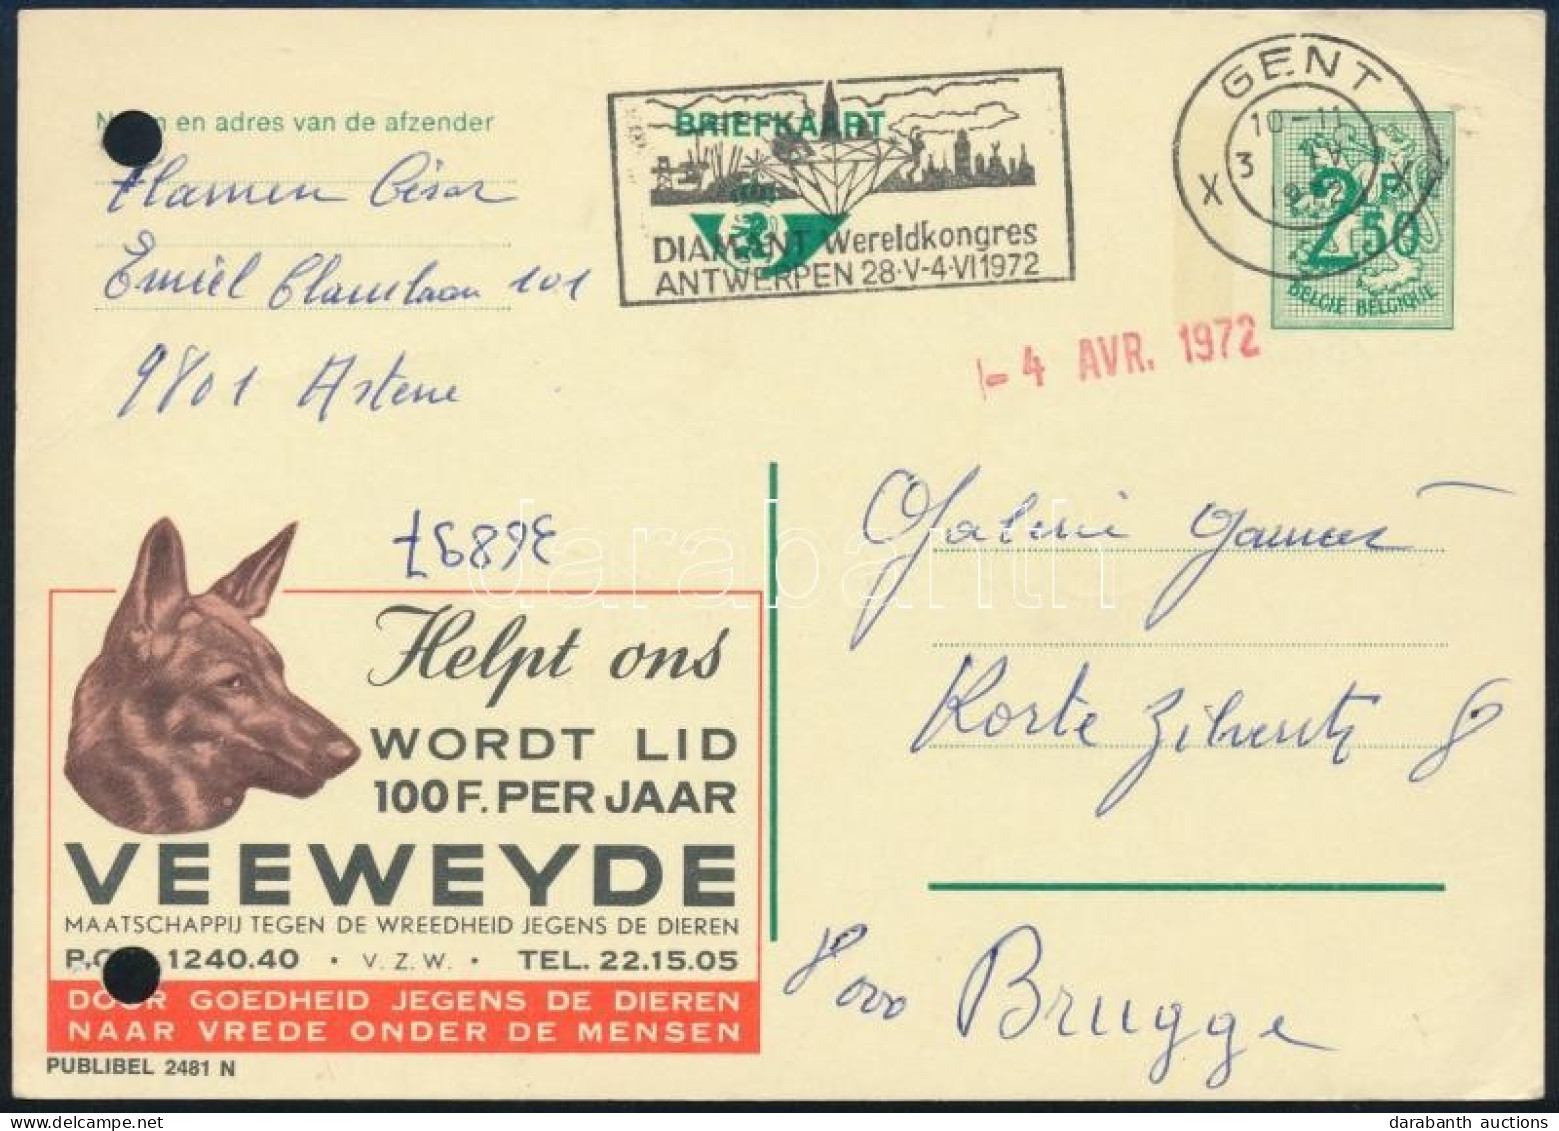 Naam en adres van de afzender
Vlamen César
Emiel Clauslaan 101
9801 Astene
BRIEFKAART
DIAMANT Wereldkongres
ANTWERPEN 28·V-4·VI 1972
GENT
10-11
3 IV
X X
2F50
BELGIE BELGIQUE
- 4 AVR. 1972
36897
darabanth
Helpt ons
WORDT LID
100F. PER JAAR
VEEWEYDE
MAATSCHAPPIJ TEGEN DE WREEDHEID JEGENS DE DIEREN
1240.40 • V.Z.W. • TEL. 22.15.05
DOOR GOEDHEID JEGENS DE DIEREN
NAAR VREDE ONDER DE MENSEN
PUBLIBEL 2481 N
Galerie
Korte Zilverstr 8
8000 Brugge
darabanth auctions